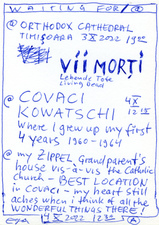 WAITING FOR/@
@ ORTHODOX CATHEDRAL
TIMIȘOARA 3 X 2022 19
VII MORȚI
Lebende Tote
Living Dead
@ COVACI 4 X
KOWATSCHI 12
Where I grew up my first
4 years 1960-1964
@ my ZIPPEL Grandparent's
house vis-a-vis the Catholic
Church - BEST LOCATION
in Covaci - my heart still
aches when I think of all the
WONDERFUL THINGS THERE!
4 X 2022 12